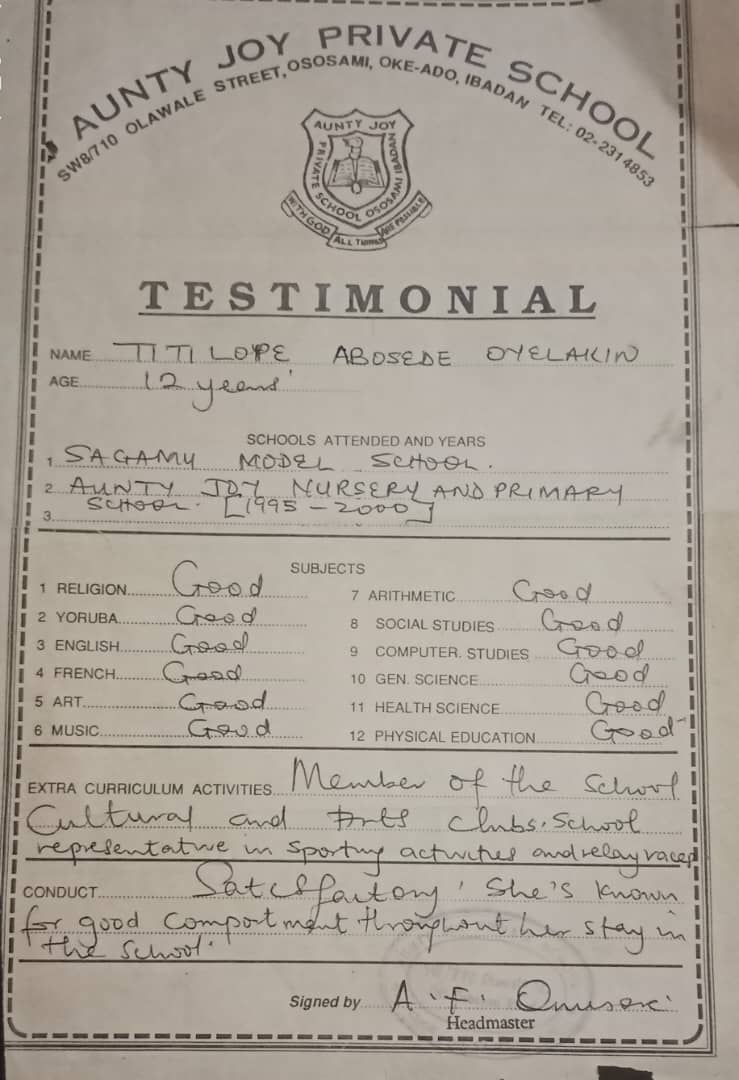 AUNTY JOY PRIVATE SCHOOL
SW8/710 OLAWALE STREET, OSOSAMI, OKE-ADO, IBADAN TEL: 02-2314853
AUNTY JOY
PRIVATE SCHOOL OSOSAMI IBADAN
WITH GOD ALL THINGS ARE POSSIBLE
TESTIMONIAL
NAME TITILOPE ABOSEDE OYELAKIN
AGE 12 years
SCHOOLS ATTENDED AND YEARS
1 SAGAMU MODEL SCHOOL.
2 AUNTY JOY NURSERY AND PRIMARY
SCHOOL. [1995 - 2000]
3
SUBJECTS
1 RELIGION Good
2 YORUBA Good
3 ENGLISH Good
4 FRENCH Good
5 ART Good
6 MUSIC Good
7 ARITHMETIC Good
8 SOCIAL STUDIES Good
9 COMPUTER. STUDIES Good
10 GEN. SCIENCE Good
11 HEALTH SCIENCE Good
12 PHYSICAL EDUCATION Good
EXTRA CURRICULUM ACTIVITIES Member of the School
Cultural and Arts Clubs. School
representative in sporting activities and relay races
CONDUCT Satisfactory. She's known
for good comportment throughout her stay in
the school.
Signed by A. F.
Headmaster